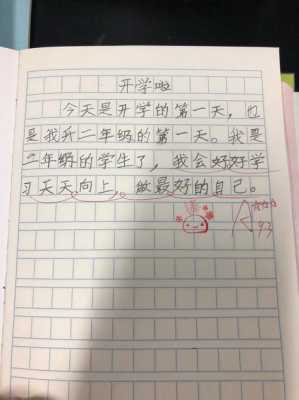 开学啦
今天是开学的第一天，也
是我升二年级的第一天。我是
二年级的学生了，我会好好学
习天天向上，做最好的自己。
A
93